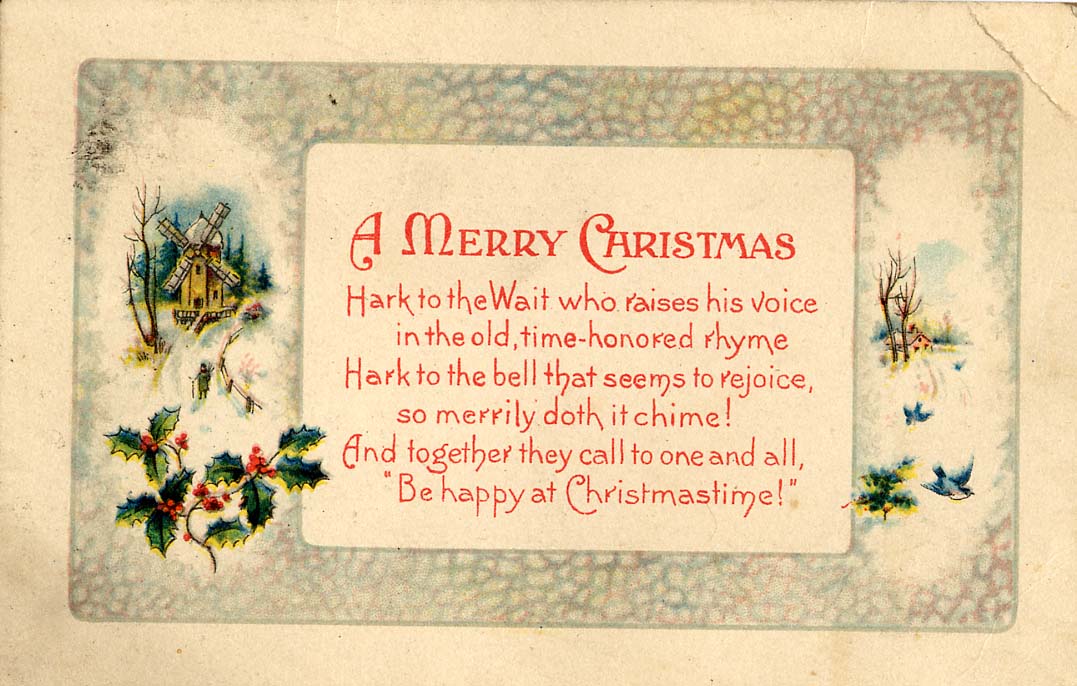 A MERRY CHRISTMAS
Hark to the Wait who raises his voice
in the old, time-honored rhyme
Hark to the bell that seems to rejoice,
so merrily doth it chime!
And together they call to one and all,
"Be happy at Christmastime!"